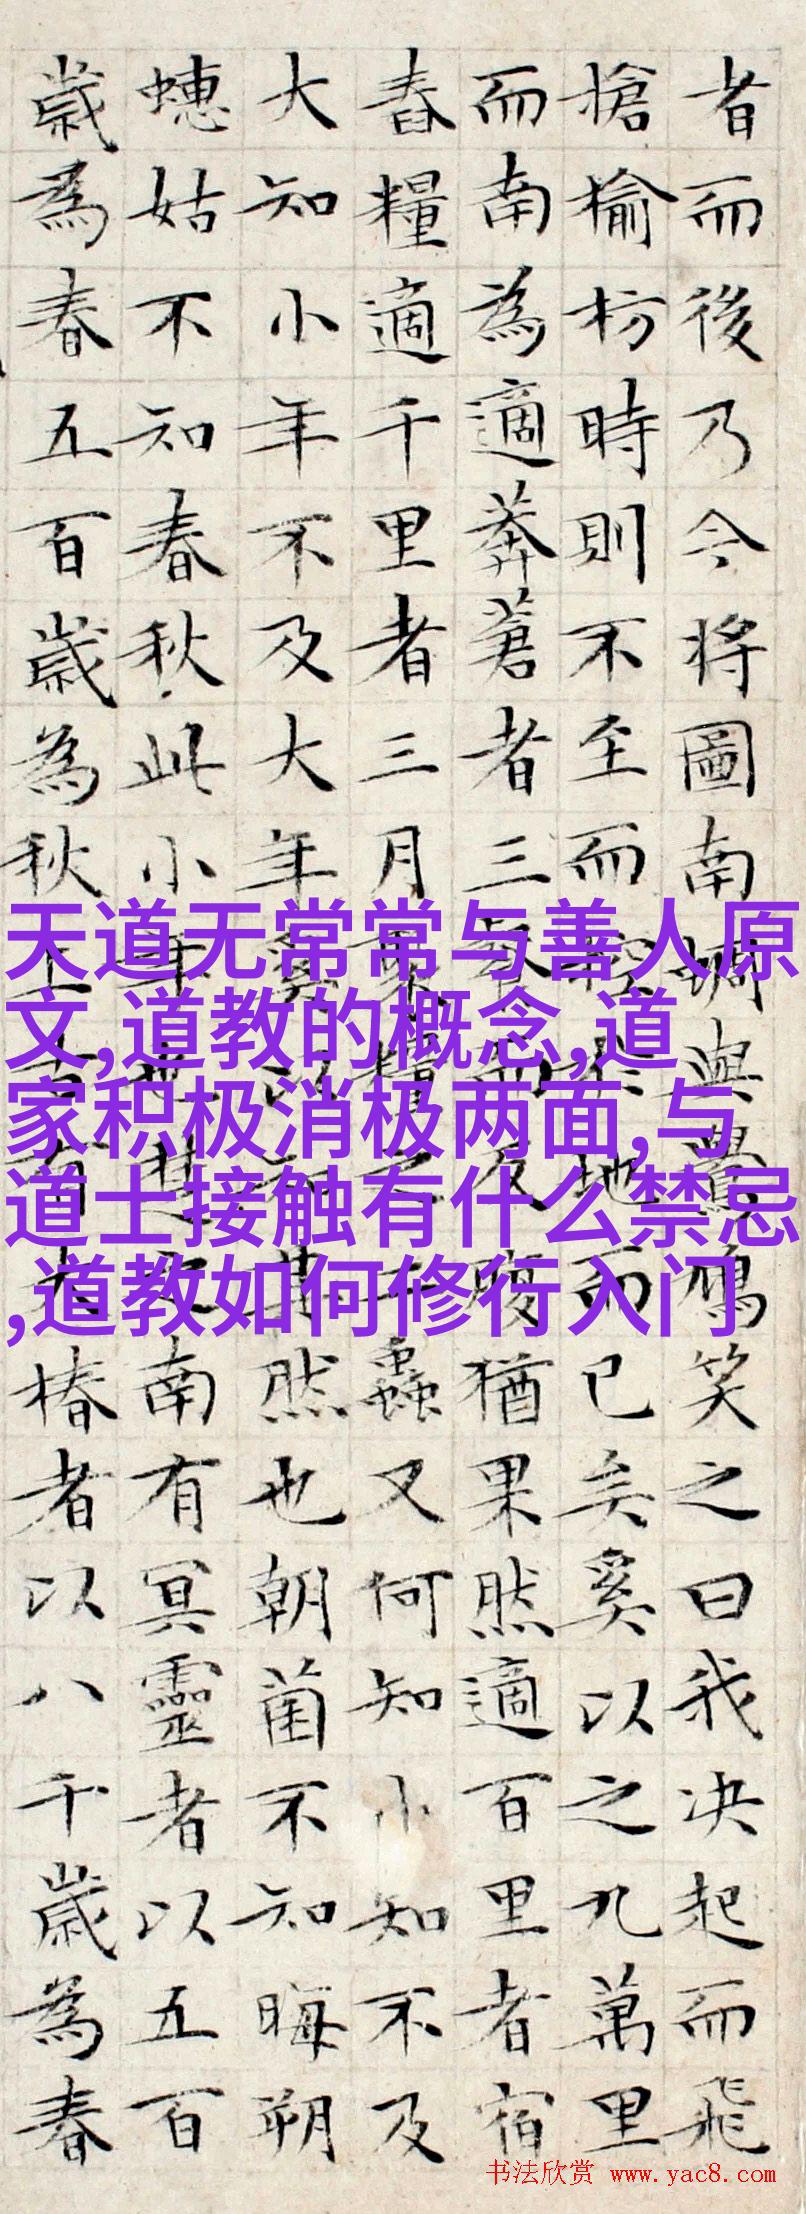 者而後乃今将圖南蜩與鷽鳩笑之曰我决起而飛
槍榆枋時則不至而控於地而已矣奚以之九萬里
而南為適莽蒼者三飡而反腹猶果然適百里者宿
舂糧適千里者三月聚糧之二蟲又何知小知不及
大知小年不及大年奚以知其然也朝菌不知晦朔
蟪姑不知春秋此小年也楚之南有冥靈者以五百
歲為春五百歲為秋上古有大椿者以八千歲為春
天道无常常与善人原
文,道教的概念,道
家积极消极两面,与
道士接触有什么禁忌
,道教如何修行入门
书法欣赏 www.yac8.com